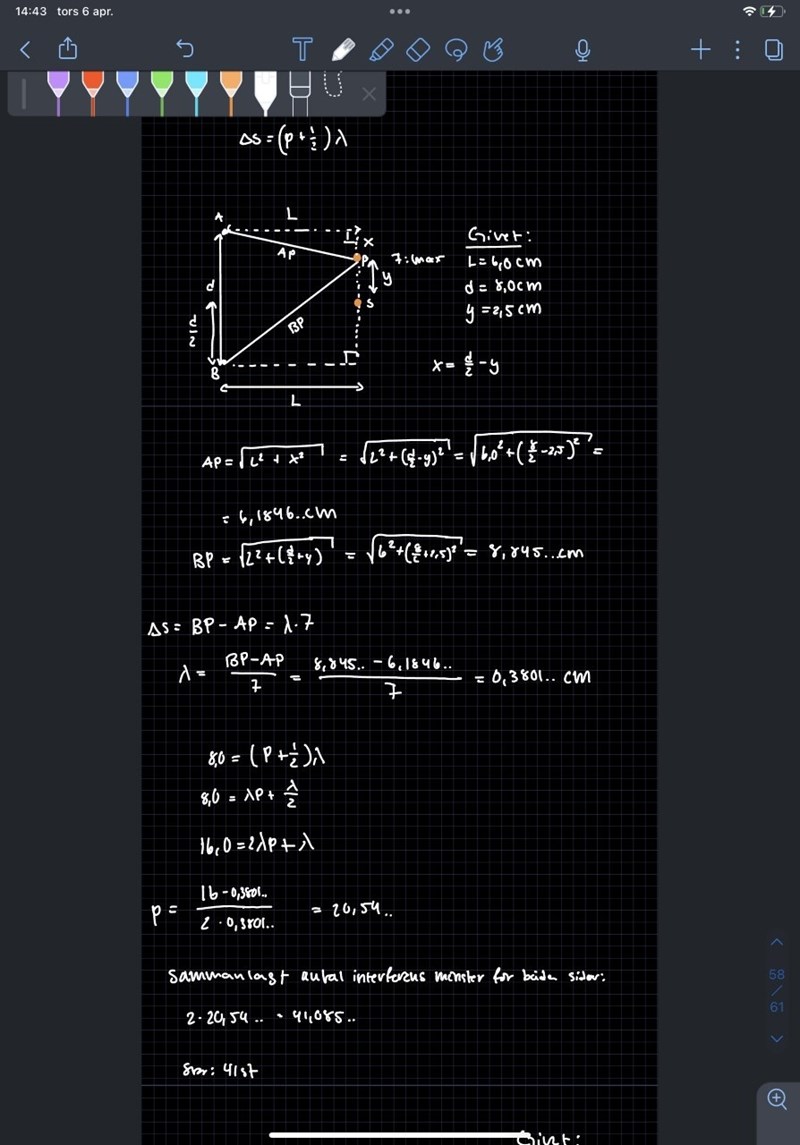 14:43 tors 6 apr.
Δs = (p + 1/2) λ
A
L
x
AP
P
7:max
y
d
s
d/2
BP
B
L
Givet:
L = 6,0 cm
d = 8,0 cm
y = 2,5 cm
x = d/2 - y
AP = √(L² + x²) = √(L² + (d/2 - y)²) = √(6,0² + (8/2 - 2,5)²) =
= 6,1846.. cm
BP = √(L² + (d/2 + y)) = √(6² + (8/2 + 2,5)²) = 8,845.. cm
Δs = BP - AP = λ·7
λ = (BP - AP)/7 = (8,845.. - 6,1846..)/7 = 0,3801.. cm
8,0 = (P + 1/2) λ
8,0 = λp + λ/2
16,0 = 2λp + λ
p = (16 - 0,3801..)/(2 · 0,3801..) = 20,54..
Sammanlagt antal interferens mönster for båda sidor:
2·20,54.. = 41,085..
Svar: 41 st
Givet:
58
/
61